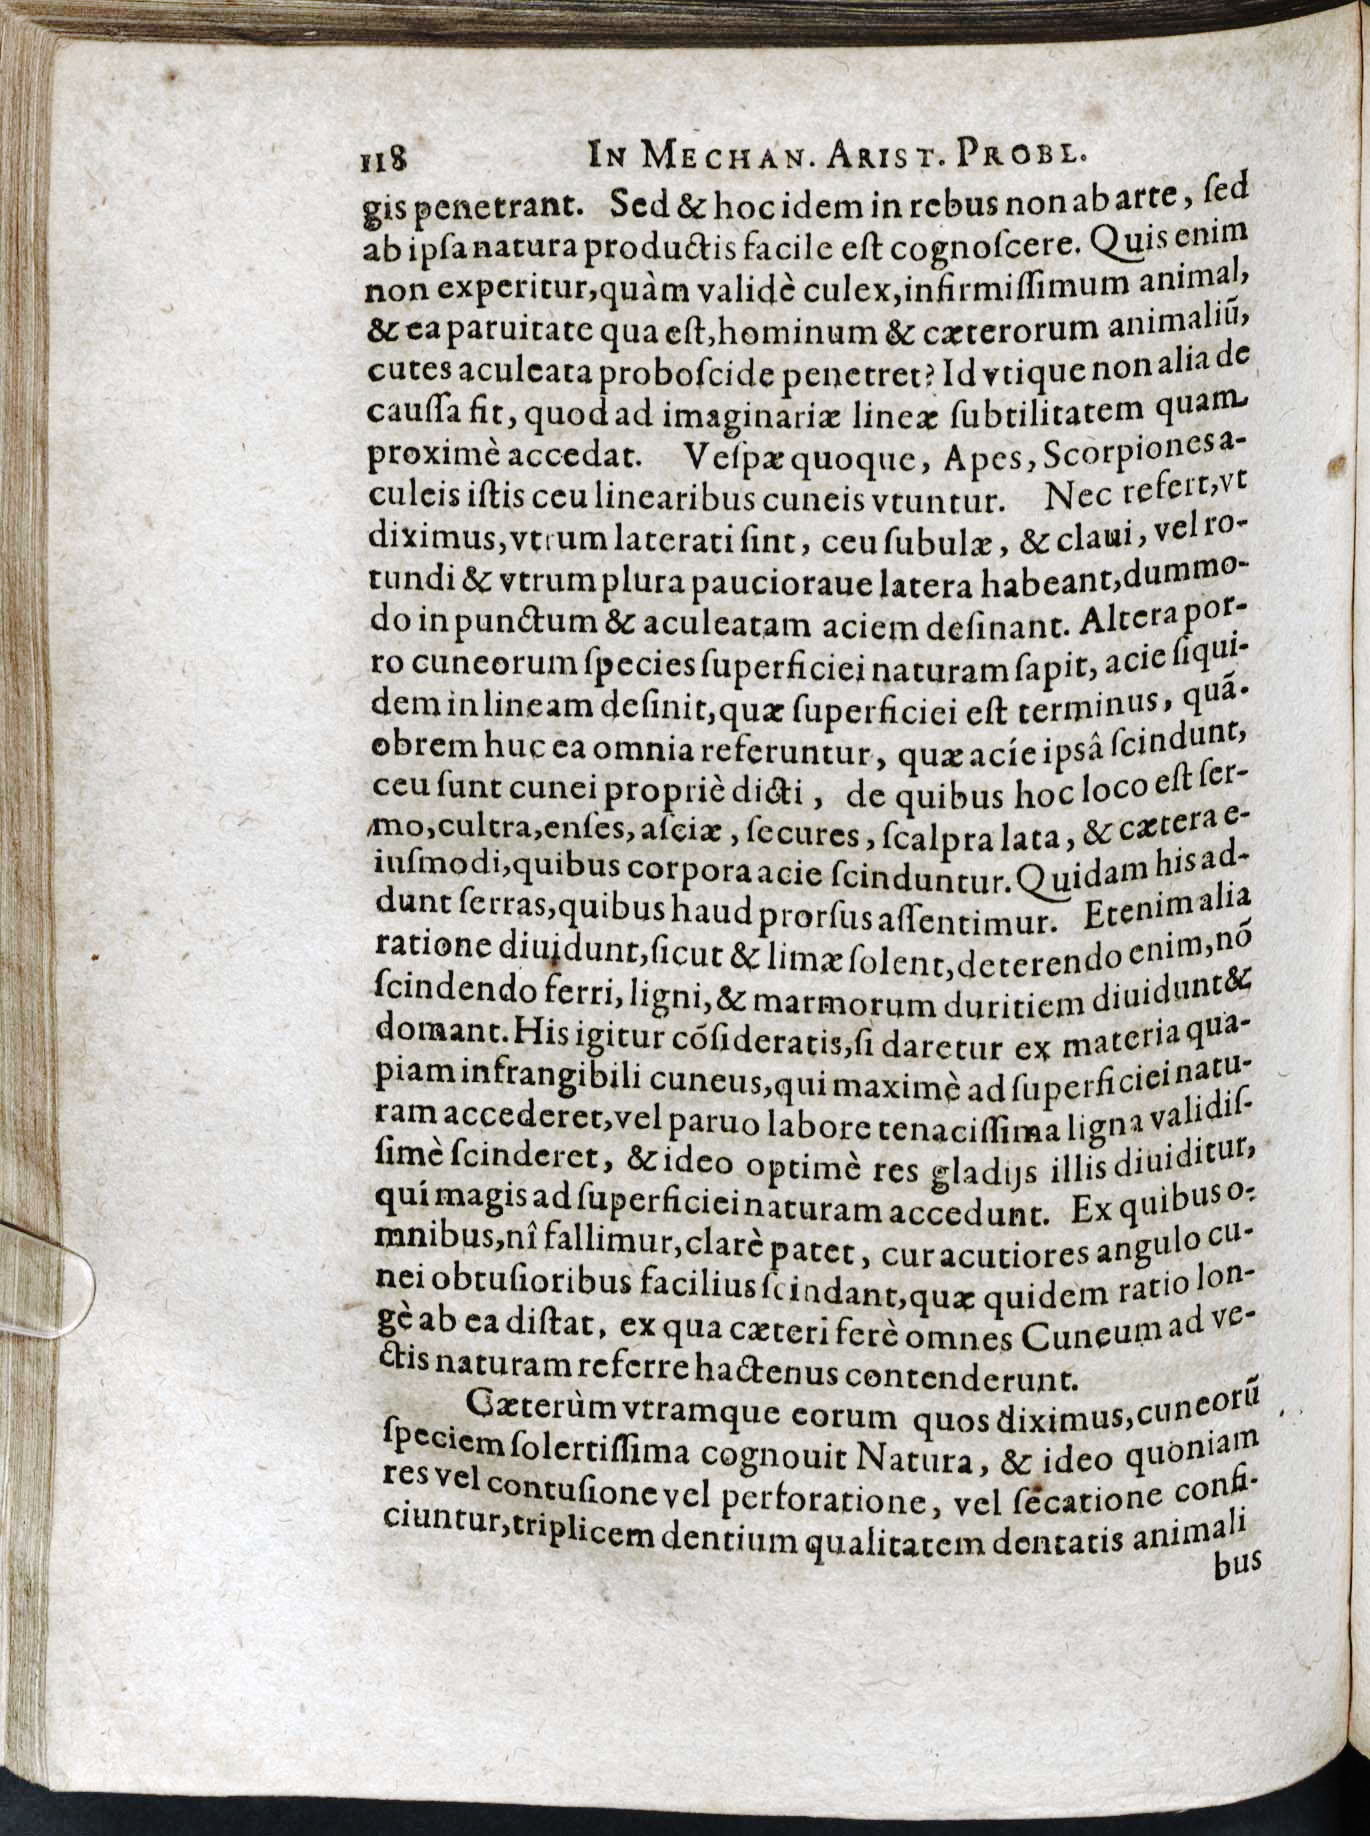 118 IN MECHAN. ARIST. PROBL.
gis penetrant. Sed & hoc idem in rebus non ab arte, ſed
ab ipſa natura productis facile eſt cognoſcere. Quis enim
non experitur, quàm validè culex, infirmiſſimum animal,
& ea paruitate qua eſt, hominum & cæterorum animaliū,
cutes aculeata proboſcide penetret? Id vtique non alia de
cauſſa fit, quod ad imaginariæ lineæ ſubtilitatem quam
proximè accedat. Veſpæ quoque, Apes, Scorpiones a-
culeis iſtis ceu linearibus cuneis vtuntur. Nec refert, vt
diximus, vtrum laterati ſint, ceu ſubulæ, & claui, vel ro-
tundi & vtrum plura paucioraue latera habeant, dummo-
do in punctum & aculeatam aciem deſinant. Altera por-
ro cuneorum ſpecies ſuperficiei naturam ſapit, acie ſiqui-
dem in lineam deſinit, quæ ſuperficiei eſt terminus, quā-
obrem huc ea omnia referuntur, quæ acíe ipsâ ſcindunt,
ceu ſunt cunei propriè dicti, de quibus hoc loco eſt ſer-
mo, cultra, enſes, aſciæ, ſecures, ſcalpra lata, & cætera e-
iuſmodi, quibus corpora acie ſcinduntur. Quidam his ad-
dunt ſerras, quibus haud prorſus aſſentimur. Etenim alia
ratione diuidunt, ſicut & limæ ſolent, deterendo enim, nō
ſcindendo ferri, ligni, & marmorum duritiem diuidunt &
domant. His igitur cōſideratis, ſi daretur ex materia qua-
piam infrangibili cuneus, qui maximè ad ſuperficiei natu-
ram accederet, vel paruo labore tenaciſſima ligna validiſ-
ſimè ſcinderet, & ideo optimè res gladijs illis diuiditur,
quí magis ad ſuperficiei naturam accedunt. Ex quibus o-
mnibus, nî fallimur, clarè patet, cur acutiores angulo cu-
nei obtuſioribus facilius ſcindant, quæ quidem ratio lon-
gè ab ea diſtat, ex qua cæteri ferè omnes Cuneum ad ve-
ctis naturam referre hactenus contenderunt.
Cæterùm vtramque eorum quos diximus, cuneorū
ſpeciem ſolertiſſima cognouit Natura, & ideo quoniam
res vel contuſione vel perforatione, vel ſecatione confi-
ciuntur, triplicem dentium qualitatem dentatis animali
bus